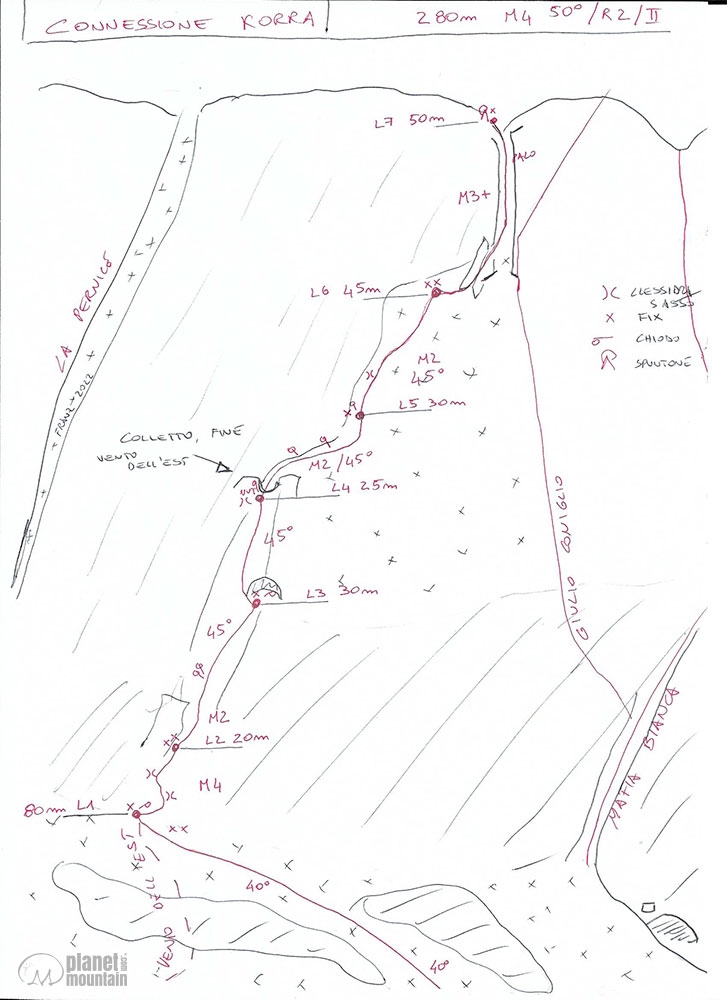 CONNESSIONE KORRA
280m M4 50°/R2/II
L7 50m
CALO
M3+
L6 45m
CLESSIDRA
SASSO
FIX
CHIODO
SPUNTONE
LA PERNICE
FRANZ + 2022
M2
45°
L5 30m
COLLETTO, FINE
VENTO
DELL'EST
M2/45°
L4 25m
45°
GIULIO CONIGLIO
L3 30m
45°
M2
L2 20m
MAFIA BIANCA
M4
80m L1
40°
VENTO DELL'EST
40°
planet
mountain
.com